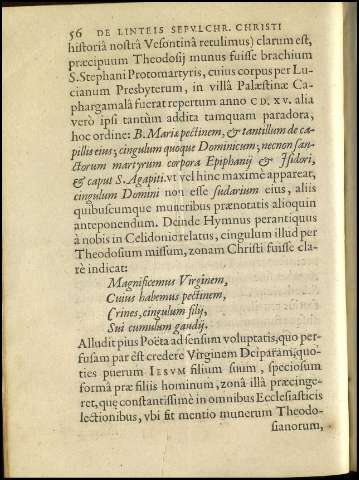 56 DE LINTEIS SEPVLCHR. CHRISTI
historiâ nostrâ Vesontinâ retulimus) clarum est,
præcipuum Theodosij munus fuisse brachium
S. Stephani Protomartyris, cuius corpus per Lu-
cianum Presbyterum, in villâ Palæstinæ Ca-
phargamalâ fuerat repertum anno CD. XV. alia
verò ipsi tantùm addita tamquam paradora,
hoc ordine: B. Mariæ pectinem, & tantillum de ca-
pillis eius; cingulum quoque Dominicum; necnon san-
ctorum martyrum corpora Epiphanij & Isidori,
& caput S. Agapiti. vt vel hinc maximè appareat,
cingulum Domini non esse sudarium eius, aliis
quibuscumque muneribus prænotatis alioquin
anteponendum. Deinde Hymnus perantiquus
à nobis in Celidonio relatus, cingulum illud per
Theodosium missum, zonam Christi fuisse cla-
rè indicat:
Magnificemus Virginem,
Cuius habemus pectinem,
Crines, cingulum filij,
Sui cumulum gaudij.
Alludit pius Poëta ad sensum voluptatis, quo per-
fusam par est credere Virginem Deiparam, quo-
ties puerum IESVM filium suum, speciosum
formâ præ filiis hominum, zonâ illâ præcinge-
ret, quę constantissimè in omnibus Ecclesiasticis
lectionibus, vbi fit mentio munerum Theodo-
sianorum,